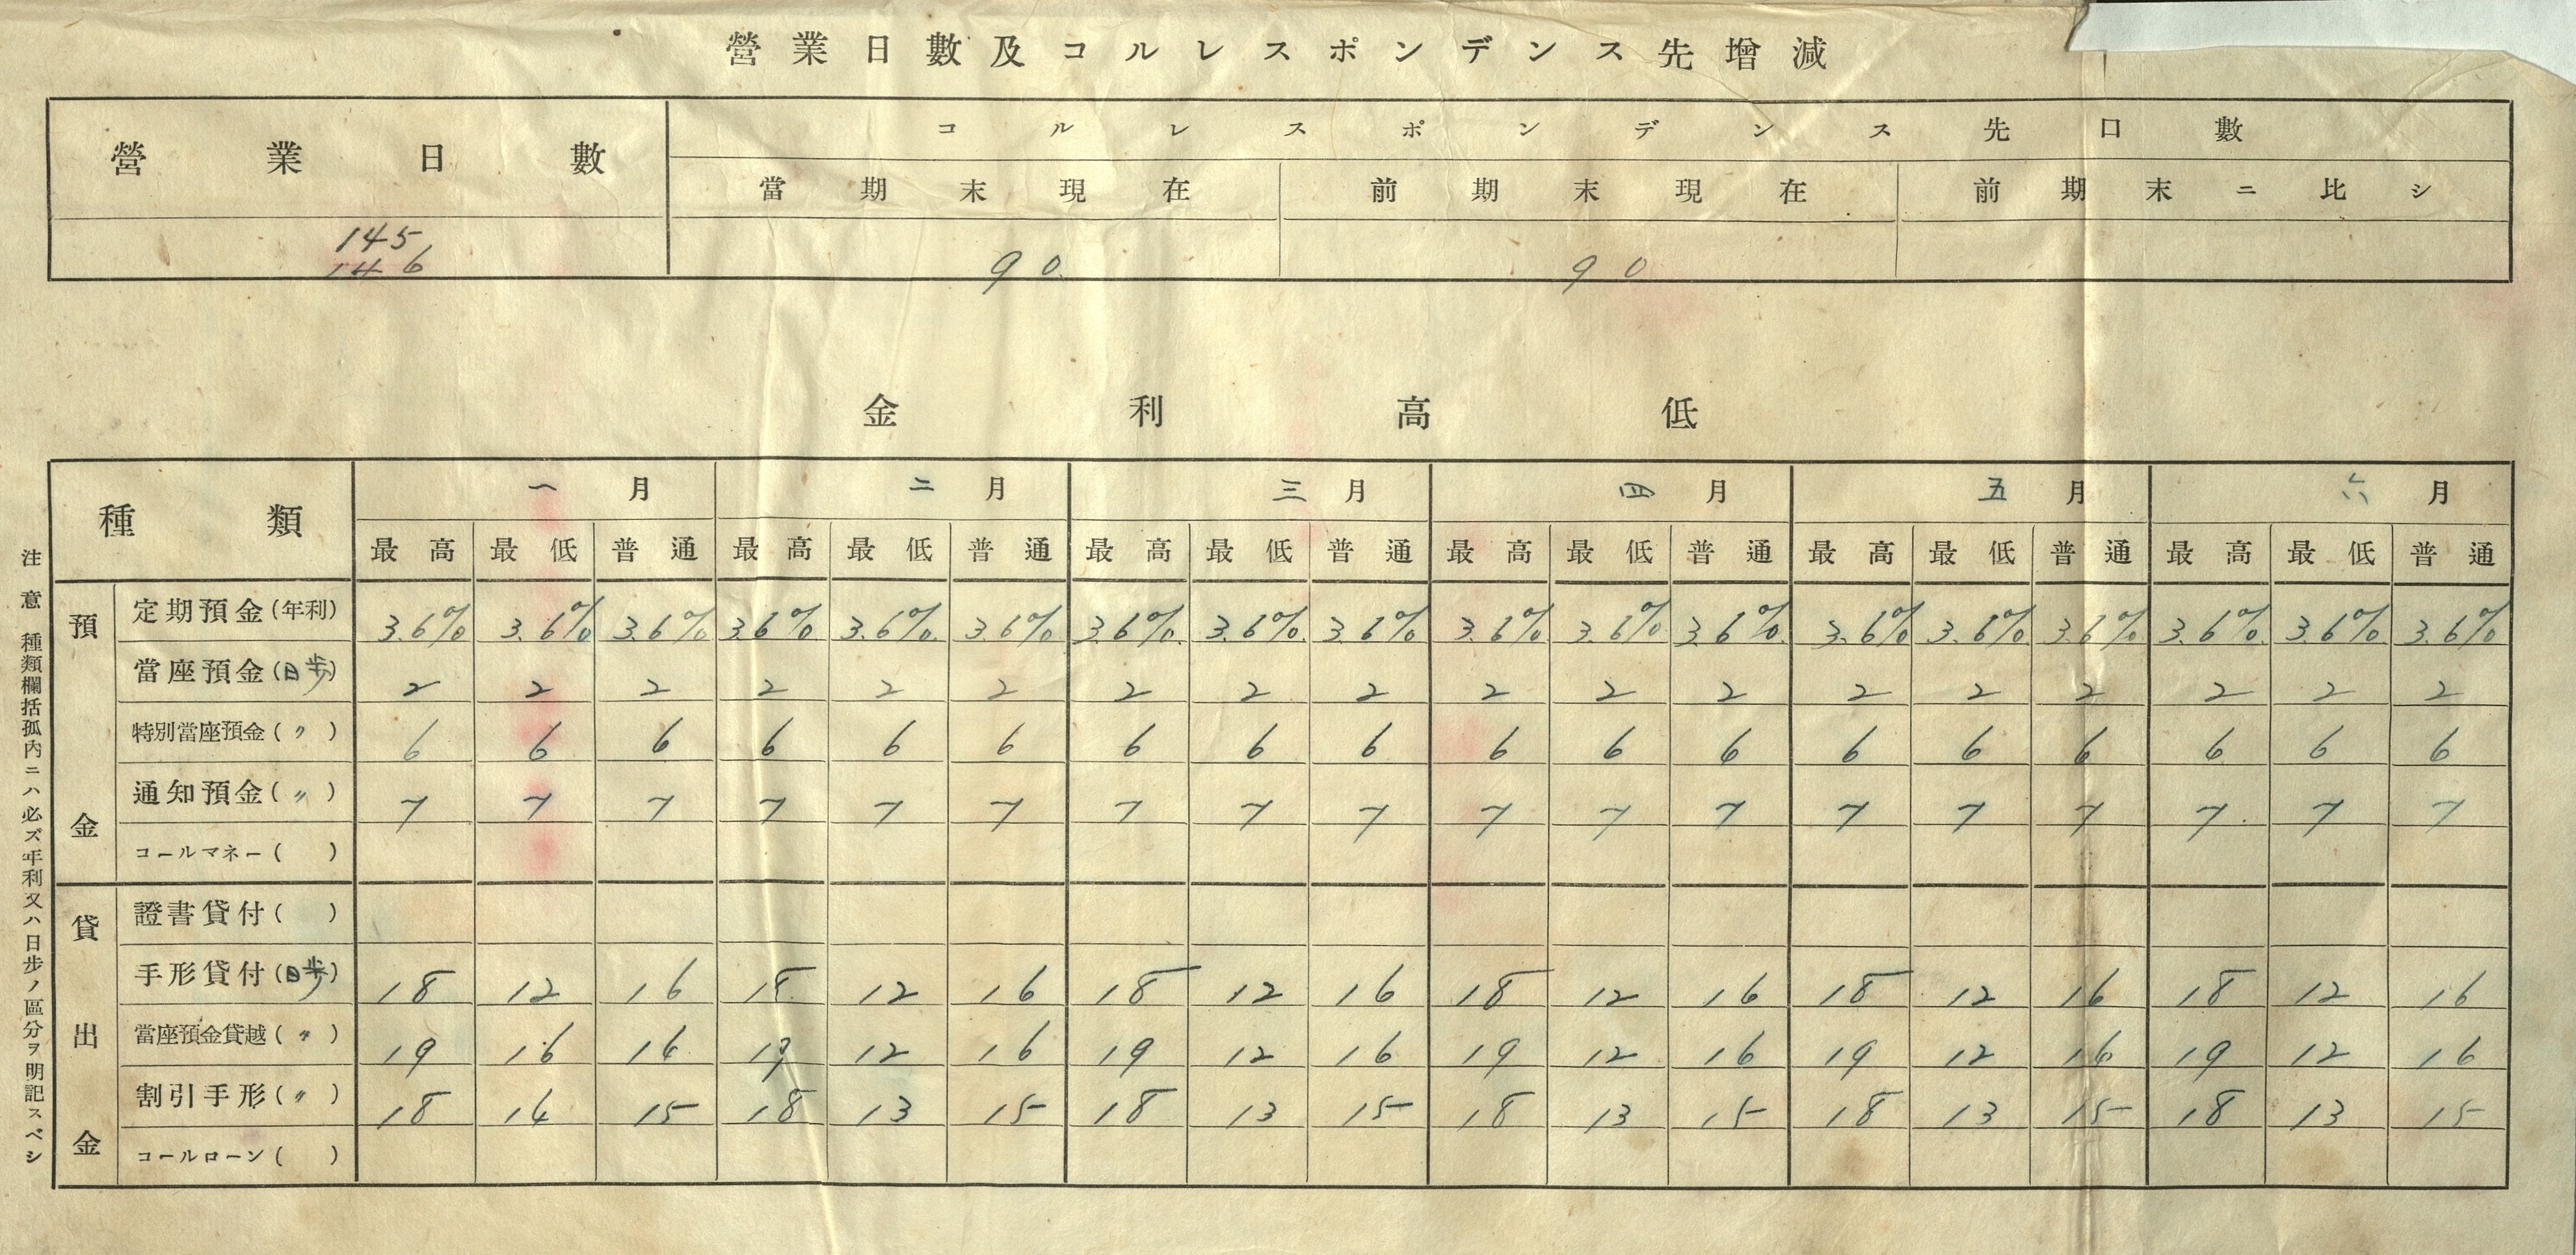 營業日數及コルレスポンデンス先增減
營業日數
コルレスポンデンス先口數
當期末現在 前期末現在 前期末ニ比シ
145
146 90 90
金利高低
種類 一月 二月 三月 四月 五月 六月
最高 最低 普通 最高 最低 普通 最高 最低 普通 最高 最低 普通 最高 最低 普通 最高 最低 普通
預金
定期預金(年利) 3.6% 3.6% 3.6% 3.6% 3.6% 3.6% 3.6% 3.6% 3.6% 3.6% 3.6% 3.6% 3.6% 3.6% 3.6% 3.6% 3.6% 3.6%
當座預金(日歩) 2 2 2 2 2 2 2 2 2 2 2 2 2 2 2 2 2 2
特別當座預金(〃) 6 6 6 6 6 6 6 6 6 6 6 6 6 6 6 6 6 6
通知預金(〃) 7 7 7 7 7 7 7 7 7 7 7 7 7 7 7 7 7 7
コールマネー( )
貸出金
證書貸付( )
手形貸付(日歩) 18 12 16 18 12 16 18 12 16 18 12 16 18 12 16 18 12 16
當座預金貸越(〃) 19 16 16 19 12 16 19 12 16 19 12 16 19 12 16 19 12 16
割引手形(〃) 18 14 15 18 13 15 18 13 15 18 13 15 18 13 15 18 13 15
コールローン( )
注意 種類欄括孤內ニハ必ズ年利又ハ日步ノ區分ヲ明記スベシ